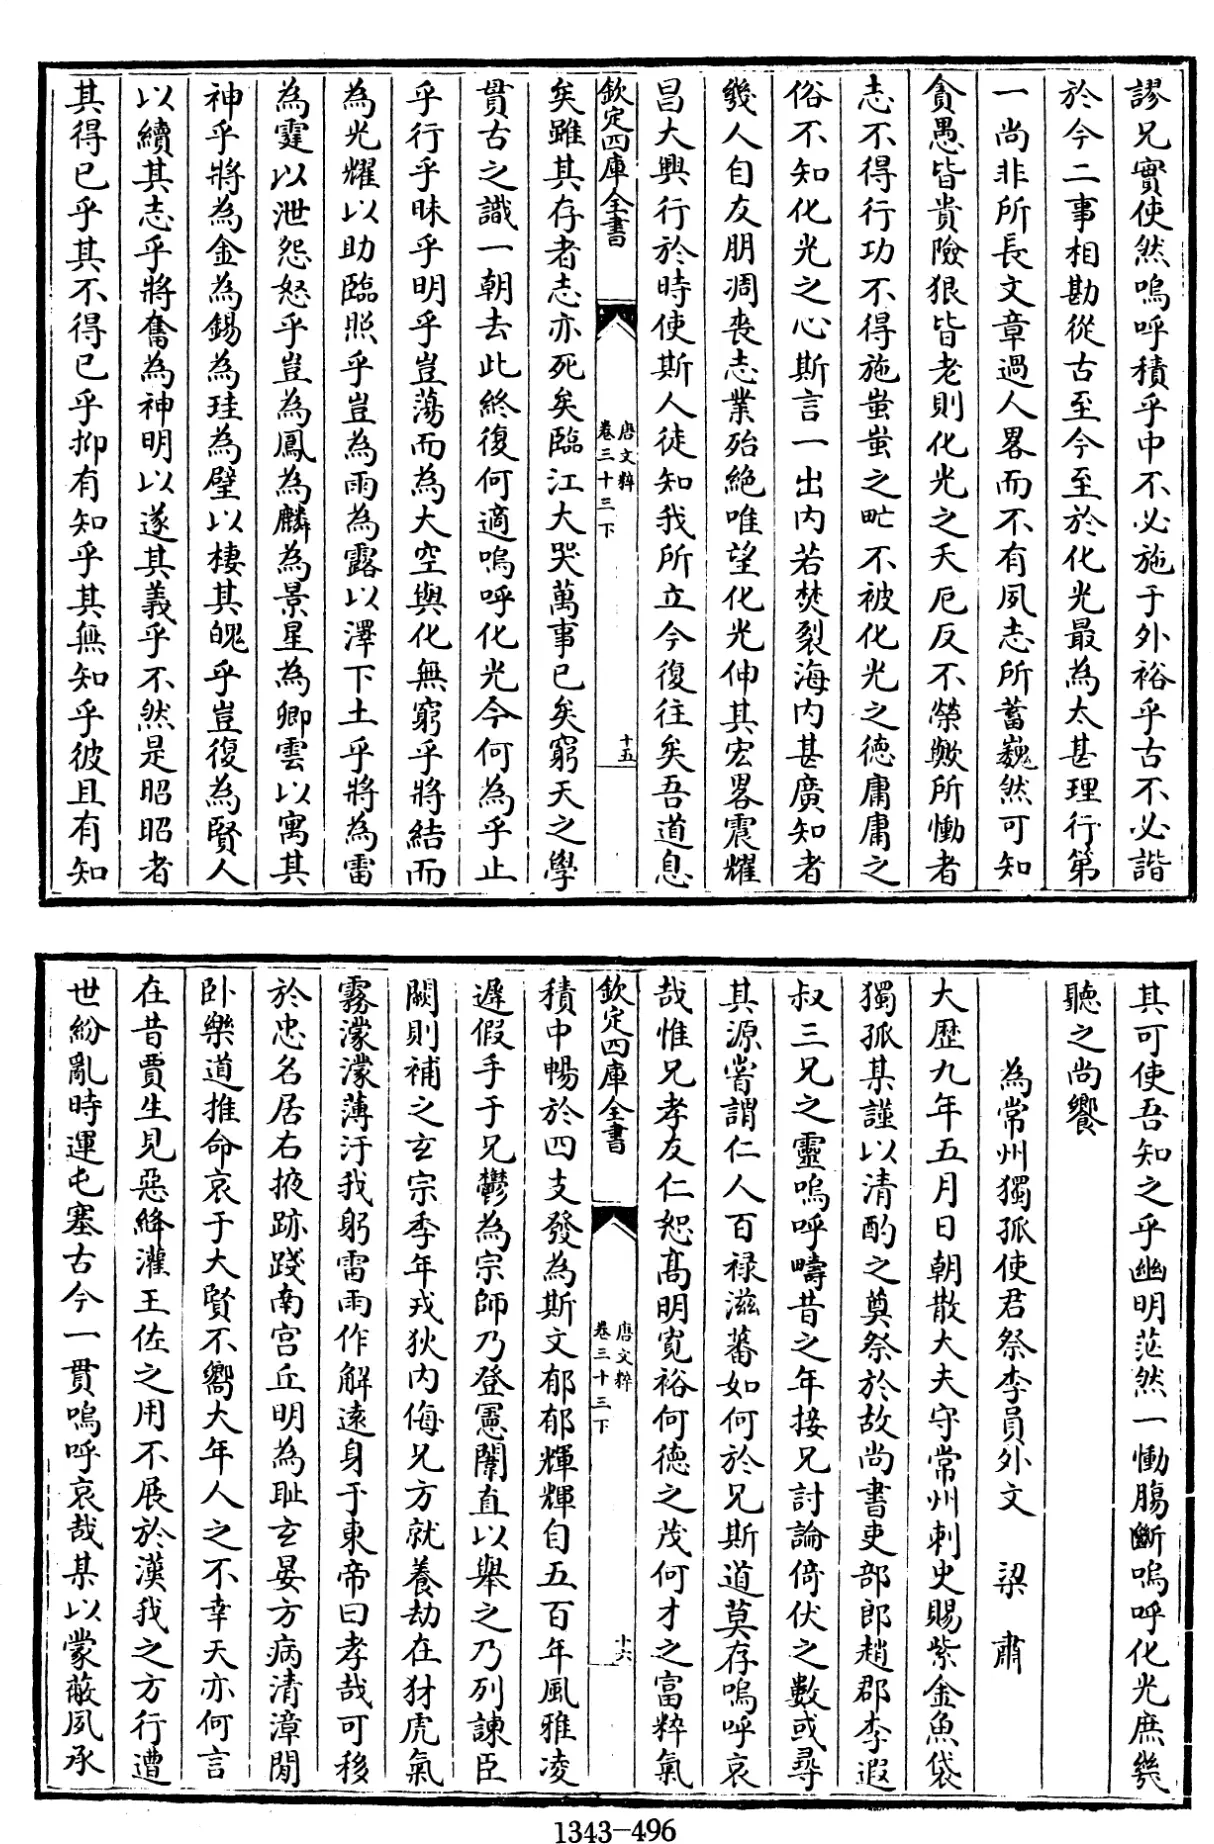 謬兄實使然嗚呼積乎中不必施于外裕乎古不必諧
於今二事相勘從古至今至於化光最為太甚理行第
一尚非所長文章過人畧而不有夙志所蓄巍然可知
貪愚皆貴險狠皆老則化光之夭厄反不榮歟所慟者
志不得行功不得施蚩蚩之甿不被化光之德庸庸之
俗不知化光之心斯言一出内若焚裂海内甚廣知者
幾人自友朋凋喪志業殆絶唯望化光伸其宏畧震耀
昌大興行於時使斯人徒知我所立今復往矣吾道息
欽定四庫全書
唐文粹
卷三十三下
十五
矣雖其存者志亦死矣臨江大哭萬事已矣窮天之學
貫古之識一朝去此終復何適嗚呼化光今何為乎止
乎行乎昧乎明乎豈蕩而為大空與化無窮乎將結而
為光耀以助臨照乎豈為雨為露以澤下土乎將為雷
為霆以泄怨怒乎豈為鳳為麟為景星為卿雲以寓其
神乎將為金為錫為珪為璧以棲其魄乎豈復為賢人
以續其志乎將奮為神明以遂其義乎不然是昭昭者
其得已乎其不得已乎抑有知乎其無知乎彼且有知
其可使吾知之乎幽明茫然一慟腸斷嗚呼化光庶幾
聽之尚饗
為常州獨孤使君祭李員外文 梁肅
大歷九年五月日朝散大夫守常州刺史賜紫金魚袋
獨孤某謹以清酌之奠祭於故尚書吏部郎趙郡李遐
叔三兄之靈嗚呼疇昔之年接兄討論倚伏之數或尋
其源嘗謂仁人百禄滋蕃如何於兄斯道莫存嗚呼哀
哉惟兄孝友仁恕髙明寛裕何德之茂何才之富粹氣
欽定四庫全書
唐文粹
卷三十三下
十六
積中暢於四支發為斯文郁郁輝輝自五百年風雅凌
遲假手于兄鬱為宗師乃登憲闈直以舉之乃列諫臣
闕則補之玄宗季年戎狄内侮兄方就養劫在豺虎氣
霧濛濛薄汙我躬雷雨作解逺身于東帝曰孝哉可移
於忠名居右掖跡踐南宫丘明為耻玄晏方病清漳閒
卧樂道推命哀于大賢不嚮大年人之不幸天亦何言
在昔賈生見惡絳灌王佐之用不展於漢我之方行遭
世紛亂時運屯塞古今一貫嗚呼哀哉某以蒙蔽夙承
1343-496